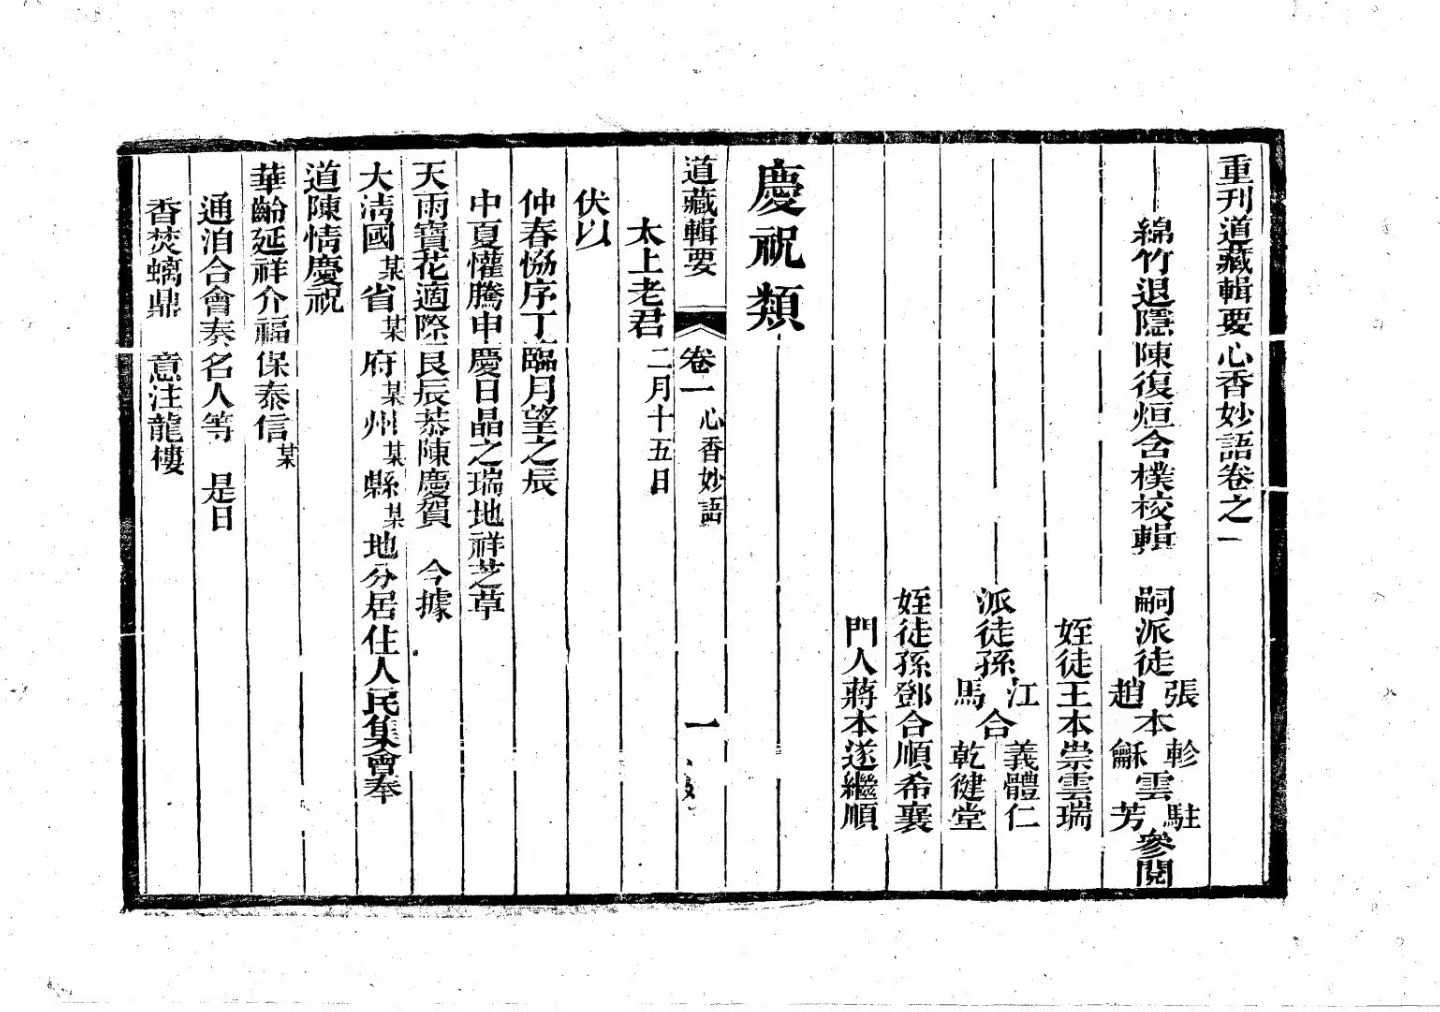 重刊道藏輯要心香妙語卷之一
綿竹退隱陳復烜含樸校輯 嗣派徒 張趙本軫龢雲駐芳參閱
姪徒王本崇雲瑞
派徒孫 江馬合義體仁乾健堂
姪徒孫鄧合順希襄
門人蔣本遂繼順
慶祝類
道藏輯要 卷一 心香妙語 一
太上老君 二月十五日
伏以
仲春恊序丁臨月望之辰
中夏懽騰申慶日晶之瑞地祥芝草
天雨寶花適際艮辰恭陳慶賀 今據
大清國某省某府某州某縣某地分居住人民集會奉
道陳情慶祝
華齡延祥介福保泰信某
通洎合會奏名人等 是日
香焚螭鼎 意注龍樓